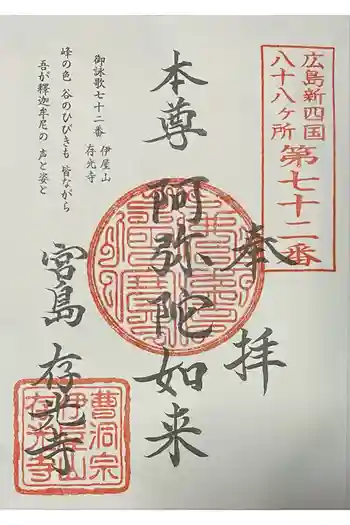 広島新四国
八十八ヶ所 第七十二番
奉拝
本尊 阿弥陀如来
宮島 存光寺
御詠歌七十二番 伊屋山
存光寺
峰の色 谷のひびきも 皆ながら
吾が釋迦牟尼の 声と姿と
曹洞宗
伊屋山
存光寺